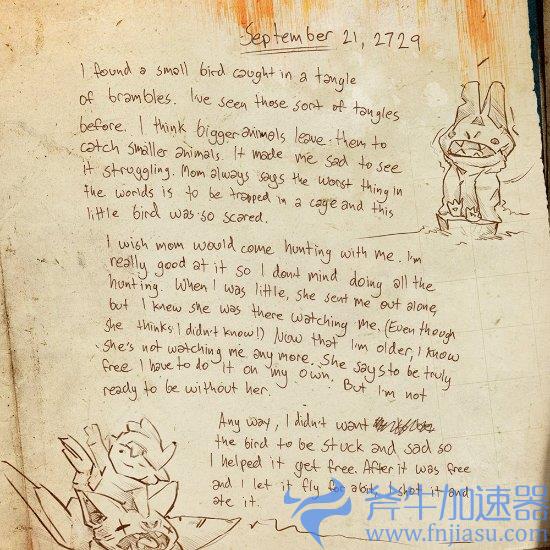 September 21, 2729
I found a small bird caught in a tangle
of brambles. I've seen those sort of tangles
before. I think bigger animals leave them to
catch smaller animals. It made me sad to see
it struggling. Mom always says the worst thing in
the worlds is to be trapped in a cage and this
little bird was so scared.
I wish mom would come hunting with me. I'm
really good at it so I dont mind doing all the
hunting. When I was little, she sent me out alone,
but I knew she was there watching me. (Even though
she thinks I didn't know!) Now that I'm older, I know
she's not watching me any more. She says to be truly
free I have to do it on my own. But I'm not
ready to be without her.
Any way, I didn't want
the bird to be stuck and sad so
I helped it get free. After it was free
and I let it fly for a bit, I shot it and
ate it.
斧牛加速器
www.fnjiasu.com